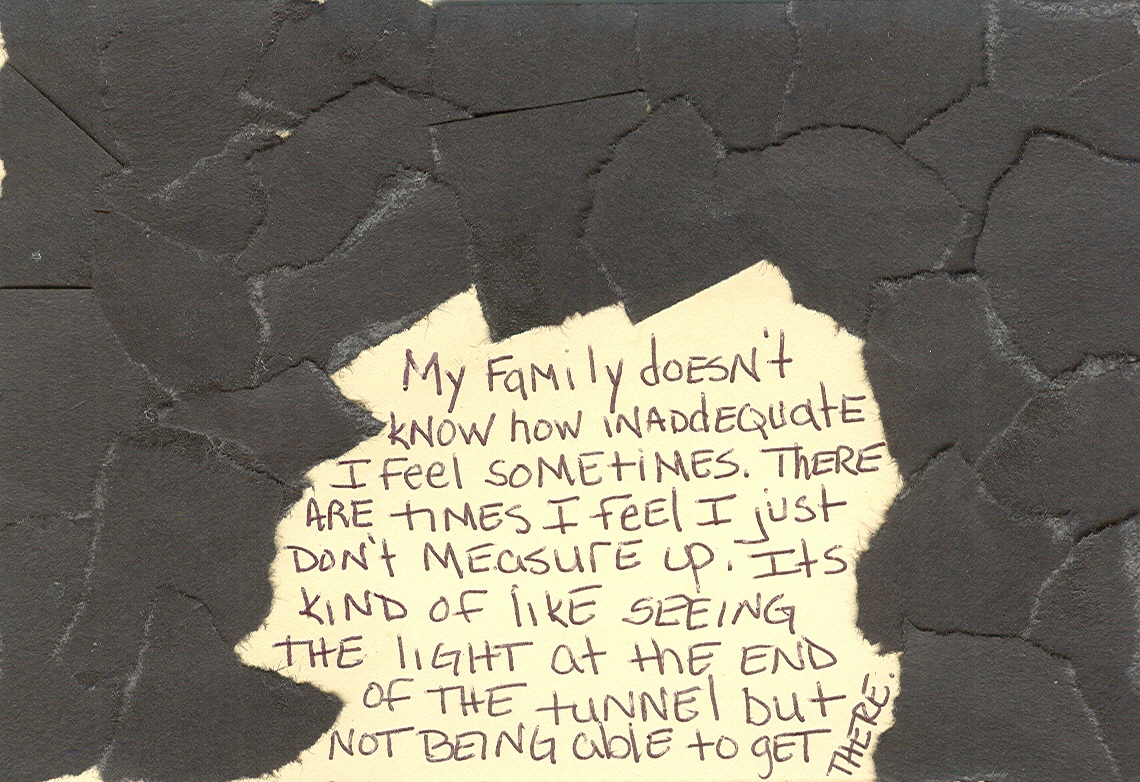 My Family doESN't
kNOW how iNAddEQUatE
I FEEl SOMEtiMES. ThERE
ARE tiMES I FEEl I just
DON't MEasurE up. Its
KiND OF likE SEEING
THE liGHT at thE END
OF THE tuNNEl but
NOT BEING ablE to gET
THERE.